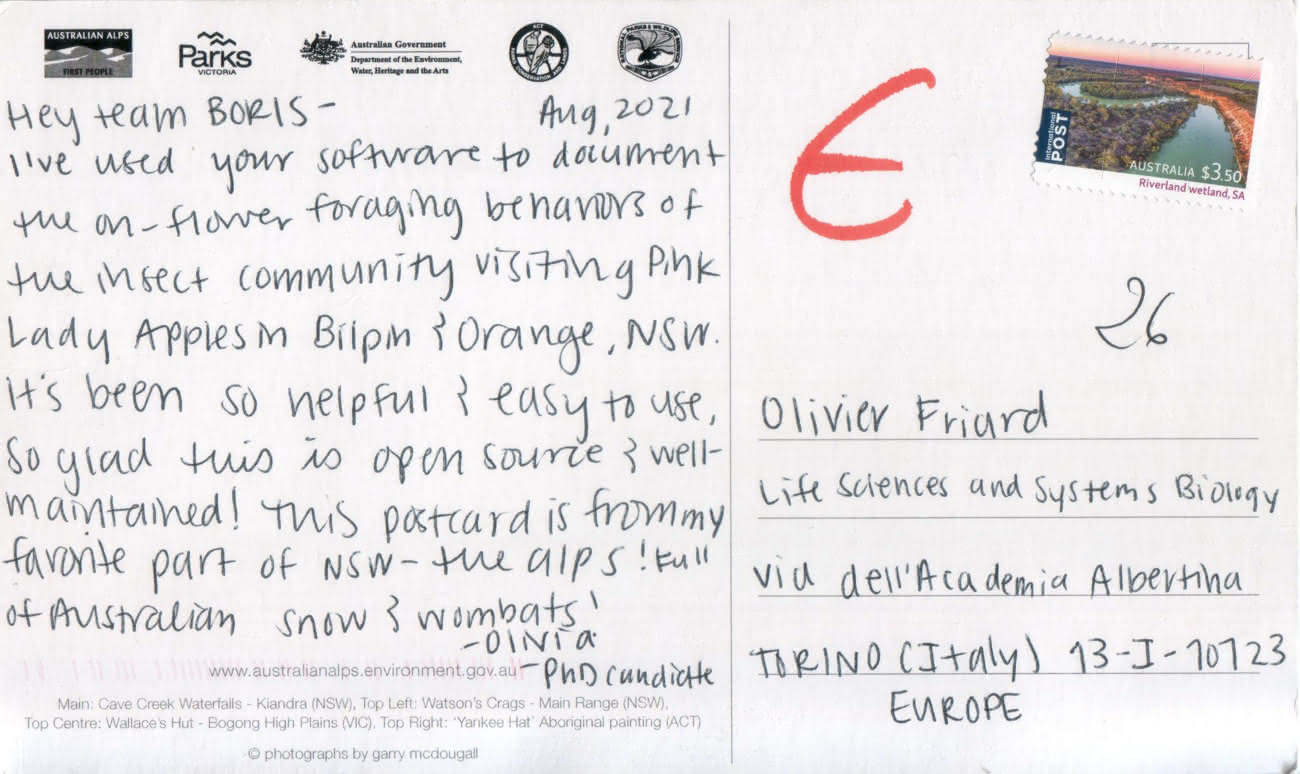 AUSTRALIAN ALPS
FIRST PEOPLE
Parks
VICTORIA
Australian Government
Department of the Environment,
Water, Heritage and the Arts
ACT
Hey team BORIS -
Aug, 2021
I've used your software to document
the on-flower foraging behaviors of
the insect community visiting Pink
Lady Apples in Bilpin & Orange, NSW.
It's been so helpful & easy to use,
so glad this is open source & well-
maintained! This postcard is from my
favorite part of NSW - the alps! Full
of Australian snow & wombats!
- Olivia
- PhD candidate
www.australianalps.environment.gov.au
Main: Cave Creek Waterfalls - Kiandra (NSW), Top Left: Watson's Crags - Main Range (NSW),
Top Centre: Wallace's Hut - Bogong High Plains (VIC), Top Right: 'Yankee Hat' Aboriginal painting (ACT)
© photographs by garry mcdougall
E
International
POST
AUSTRALIA $3.50
Riverland wetland, SA
26
Olivier Friard
Life Sciences and Systems Biology
via dell'Academia Albertina
TORINO (Italy) 13-I-10123
EUROPE